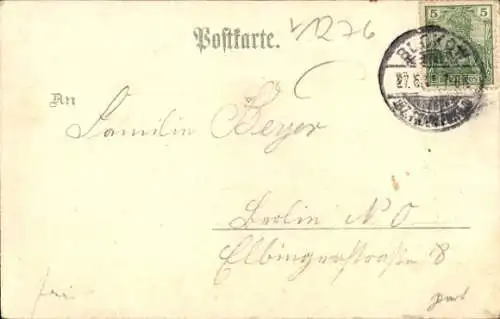 Postkarte.
1276
5 5
27.6.
An
Familie Beyer
Berlin N. O
Elbingerstraße 8
frei